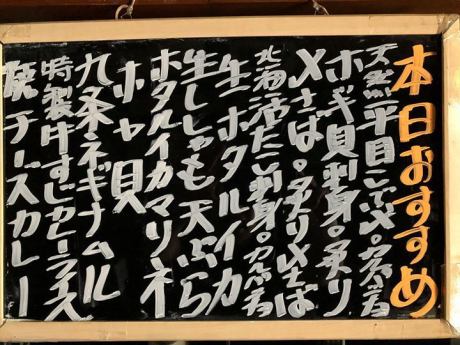 本日おすすめ
天然平目こぶ〆。カルパッチョ
ホッキ貝刺身。炙り
〆さば。炙り〆さば
北海活たこ刺身。カルパッチョ
生ホタルイカ
生ししゃも天ぷら
ホタルイカマリネ
ホヤ貝
九条ネギナムル
特製牛すじカレーライス
焼チーズカレー